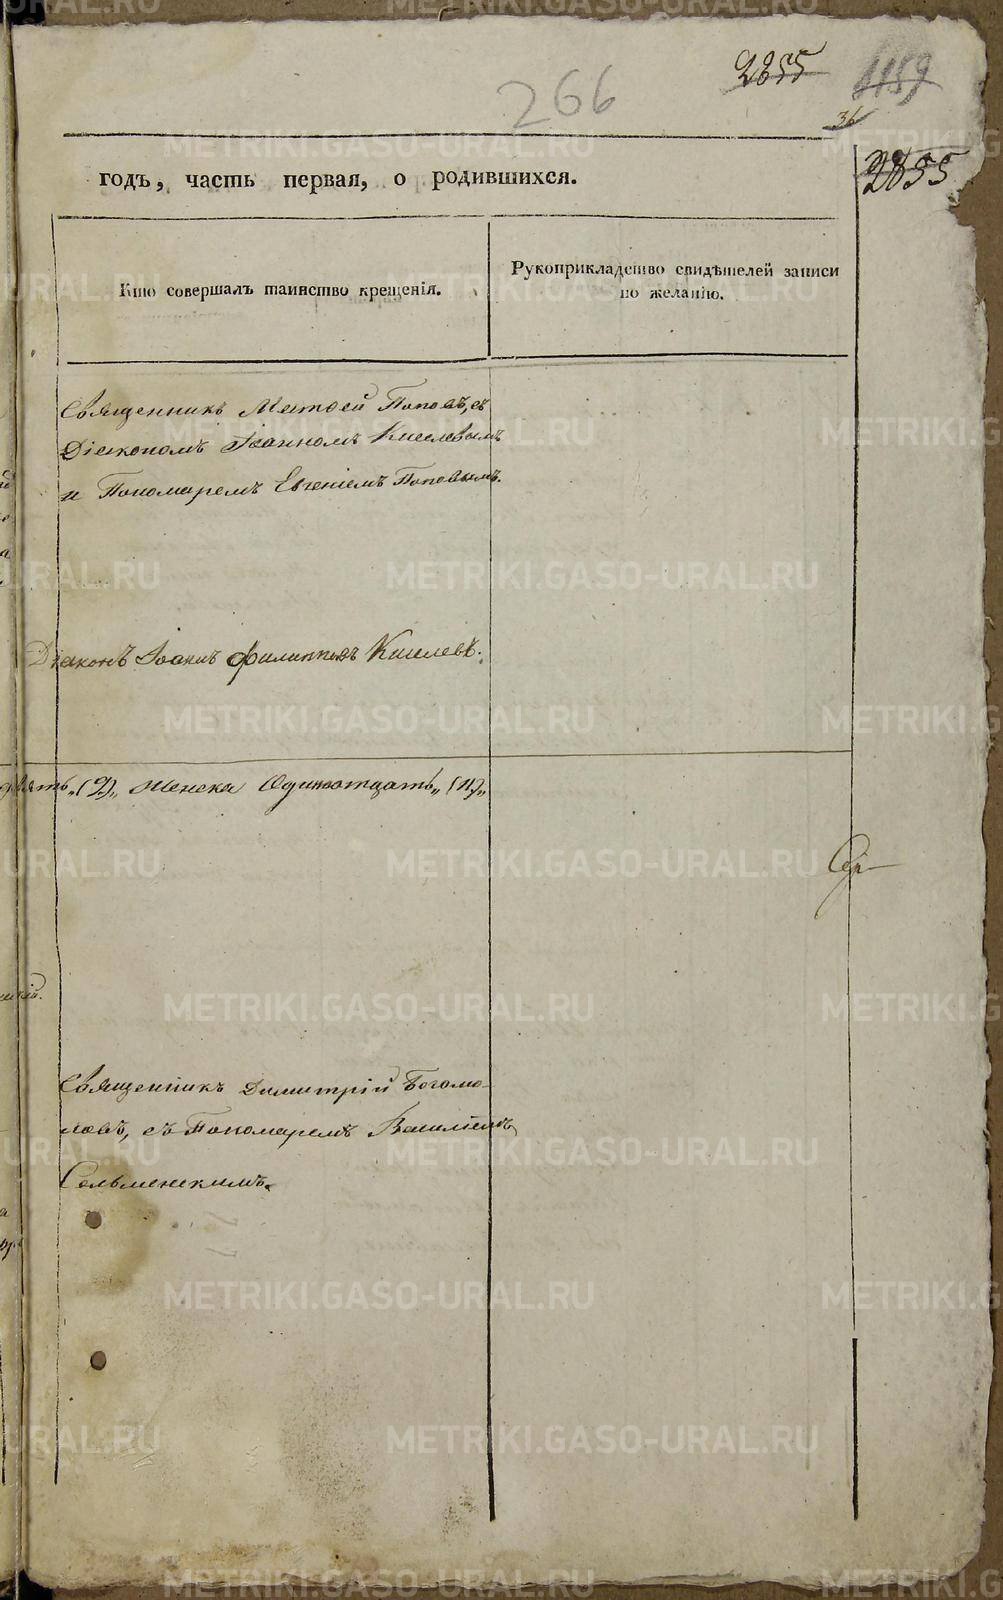 266
2855
1159
36
2855
годъ, часть первая, о родившихся.
Кто совершалъ таинство крещенія.
Рукоприкладство свидѣтелей записи
по желанію.
Священникъ Матөей Поповъ, съ
Діакономъ Іоанномъ Киселевымъ
и Пономаремъ Евгеніемъ Поповымъ.
Діаконъ Іоаннъ Филипповъ Киселевъ.
женска Одиннатцать „(11)„
Священникъ Димитрій Богомо-
ловъ, съ Пономаремъ Василіемъ
Сельменскимъ.
METRIKI.GASO-URAL.RU